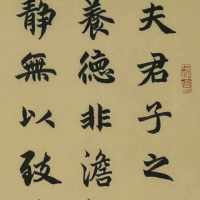 夫君子之
養德非澹
静無以致